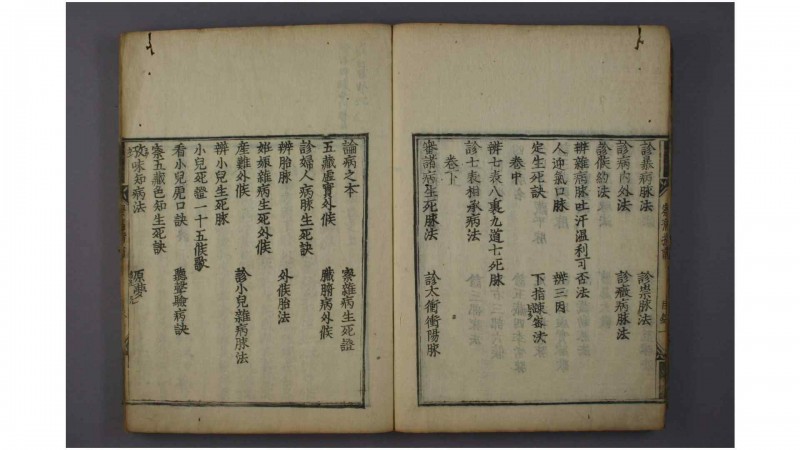 診暴病脉法　診祟脉法
診病内外法　診癥病脉法
診候約法
辨雜病脉吐汗溫利可否法
人迎氣口脉　辨三因
定生死訣　下指踈審法
卷中
辨七表八裏九道七死脉
診七表相承病法
卷下
審諸病生死脉法　診太衝衝陽脉
論病之本　察雜病生死證
五藏虛實外候　臟腑病外候
診婦人病脉生死訣
辨胎脉　外候胎法
姙娠雜病生死外候
產難外候　診小兒雜病脉法
辨小兒生死脉
小兒死證一十五候歌
看小兒虎口訣　聽聲驗病訣
察五藏色知生死訣
攷味知病法　原夢